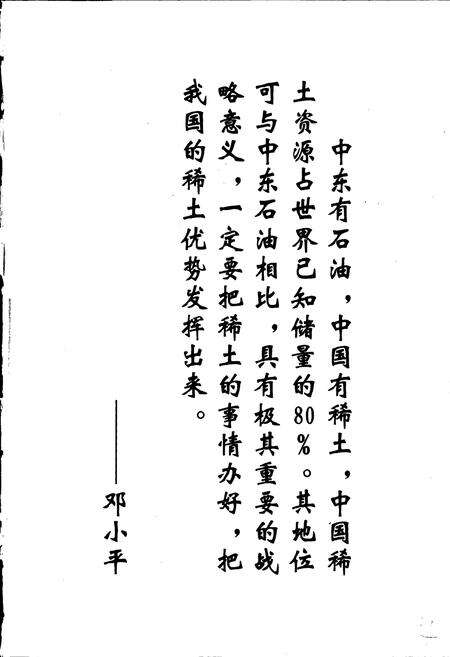 中东有石油，中国有稀土，中国稀
土资源占世界已知储量的80%。其地位
可与中东石油相比，具有极其重要的战
略意义，一定要把稀土的事情办好，把
我国的稀土优势发挥出来。
——邓小平